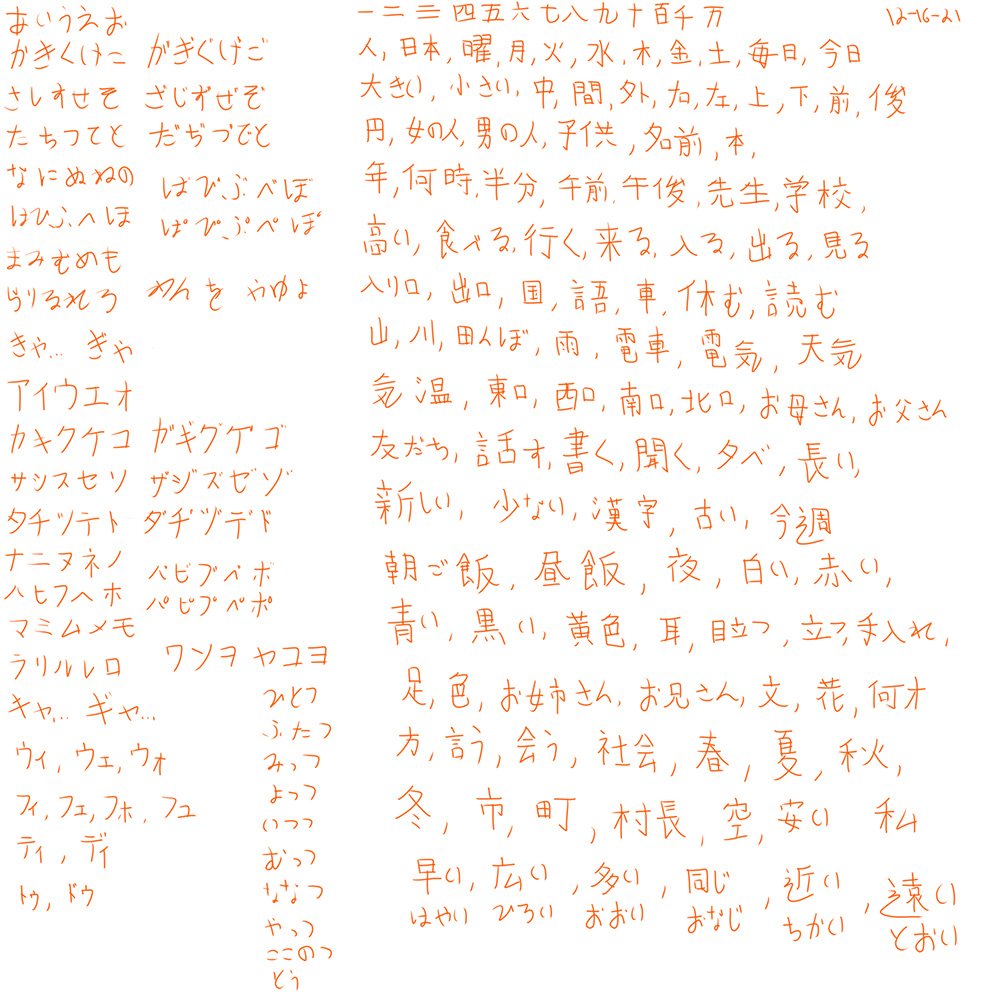 あいうえお
かきくけこ がぎぐげご
さしすせそ ざじずぜぞ
たちつてと だぢづでど
なにぬねの
ばびぶべぼ
はひふへほ
ぱぴぷぺぽ
まみむめも
らりるれろ わんを やゆよ
きゃ... ぎゃ
アイウエオ
カキクケコ ガギグゲゴ
サシスセソ ザジズゼゾ
タチツテト ダヂヅデド
ナニヌネノ
バビブベボ
ハヒフヘホ
パピプペポ
マミムメモ
ラリルレロ ワンヲ ヤユヨ
キャ... ギャ...
ウィ, ウェ, ウォ
フィ, フェ, フォ, フュ
ティ, ディ
トゥ, ドゥ
ひとつ
ふたつ
みっつ
よっつ
いつつ
むっつ
ななつ
やっつ
ここのつ
とう
一二三四五六七八九十百千万 12-16-21
人, 日本, 曜, 月, 火, 水, 木, 金, 土, 毎日, 今日
大きい, 小さい, 中, 間, 外, 右, 左, 上, 下, 前, 後
円, 女の人, 男の人, 子供, 名前, 本,
年, 何時, 半分, 午前, 午後, 先生, 学校,
高い, 食べる, 行く, 来る, 入る, 出る, 見る
入り口, 出口, 国, 語, 車, 休む, 読む
山, 川, 田んぼ, 雨, 電車, 電気, 天気
気温, 東口, 西口, 南口, 北口, お母さん, お父さん
友だち, 話す, 書く, 聞く, 夕べ, 長い,
新しい, 少ない, 漢字, 古い, 今週
朝ご飯, 昼飯, 夜, 白い, 赤い,
青い, 黒い, 黄色, 耳, 目立つ, 立つ, 手入れ,
足, 色, お姉さん, お兄さん, 文, 花, 何才
方, 言う, 会う, 社会, 春, 夏, 秋,
冬, 市, 町, 村長, 空, 安い 私
早い, 広い, 多い, 同じ, 近い, 遠い
はやい ひろい おおい おなじ ちかい とおい